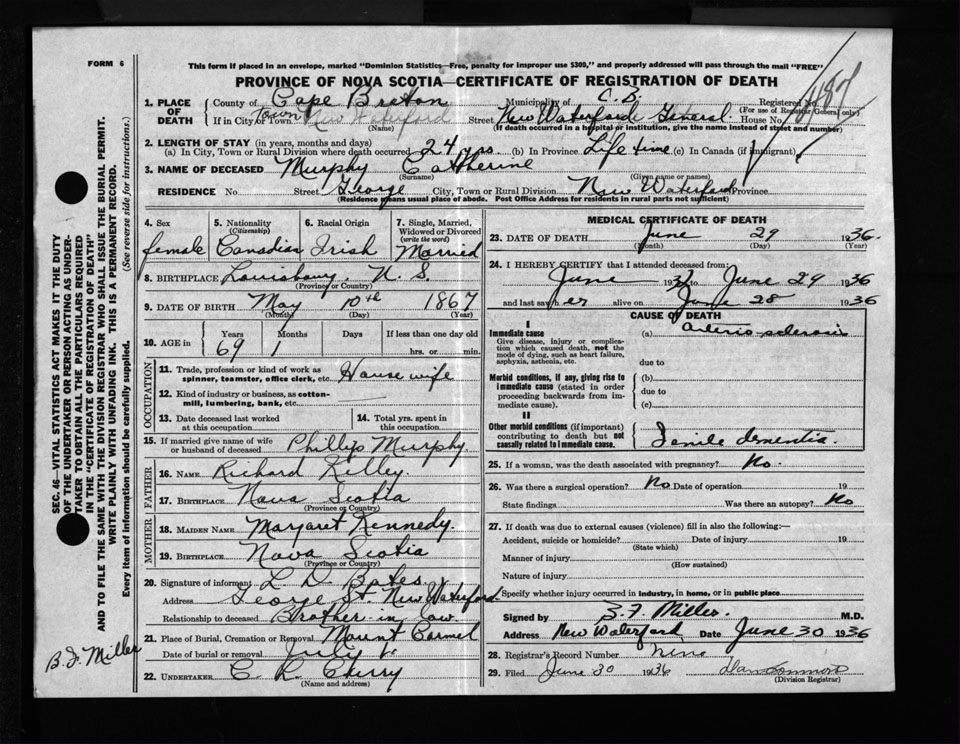 FORM 6
This form if placed in an envelope, marked "Dominion Statistics—Free, penalty for improper use $300," and properly addressed will pass through the mail "FREE"
PROVINCE OF NOVA SCOTIA—CERTIFICATE OF REGISTRATION OF DEATH
1. PLACE OF DEATH County of Cape Breton Municipality of C. B. Registered No.
(For use of Registrar General only)
If in City or Town Town New Waterford Street New Waterford General House No.
(Name) (If death occurred in a hospital or institution, give the name instead of street and number)
2. LENGTH OF STAY (in years, months and days)
(a) In City, Town or Rural Division where death occurred 24 yrs. (b) In Province Life time (c) In Canada (if immigrant)
3. NAME OF DECEASED Murphy Catherine
(Surname) (Given name or names)
RESIDENCE No Street George City, Town or Rural Division New Waterford Province
(Residence means usual place of abode. Post Office Address for residents in rural parts not sufficient)
4. Sex female
5. Nationality (Citizenship) Canadian
6. Racial Origin Irish
7. Single, Married, Widowed or Divorced (write the word) Married
8. BIRTHPLACE Louisbourg, N. S
(Province or Country)
9. DATE OF BIRTH May 10th 1867
(Month) (Day) (Year)
10. AGE in Years 69 Months 1 Days If less than one day old
hrs. or min.
OCCUPATION
11. Trade, profession or kind of work as spinner, teamster, office clerk, etc. House wife
12. Kind of industry or business, as cotton-mill, lumbering, bank, etc.
13. Date deceased last worked at this occupation
14. Total yrs. spent in this occupation
15. If married give name of wife or husband of deceased Phillip Murphy.
FATHER
16. NAME Richard Kelley.
17. BIRTHPLACE Nova Scotia
(Province or Country)
MOTHER
18. MAIDEN NAME Margaret Kennedy.
19. BIRTHPLACE Nova Scotia
(Province or Country)
20. Signature of informant L. D. Bates.
Address George St. New Waterford
Relationship to deceased Brother in law
21. Place of Burial, Cremation or Removal Mount Carmel
Date of burial or removal July 1
22. UNDERTAKER C. R. Cherry
(Name and address)
MEDICAL CERTIFICATE OF DEATH
23. DATE OF DEATH June 29 1936.
(Month) (Day)
24. I HEREBY CERTIFY that I attended deceased from:
June 193 to June 29 1936
and last saw her alive on June 28 1936
CAUSE OF DEATH
I
Immediate cause (a) Arterio-sclerosis
Give disease, injury or complication which caused death, not the mode of dying, such as heart failure, asphyxia, asthenia, etc.
due to
Morbid conditions, if any, giving rise to immediate cause (stated in order proceeding backwards from immediate cause).
(b)
due to
(c)
II
Other morbid conditions (if important) contributing to death but not causally related to immediate cause. Senile dementia.
25. If a woman, was the death associated with pregnancy? No.
26. Was there a surgical operation? No Date of operation 19
State findings Was there an autopsy? No
27. If death was due to external causes (violence) fill in also the following:—
Accident, suicide or homicide? Date of injury 19
(State which)
Manner of injury
(How sustained)
Nature of injury
Specify whether injury occurred in industry, in home, or in public place
Signed by B. F. Miller. M.D.
Address New Waterford Date June 30 1936
28. Registrar's Record Number
29. Filed June 30 1936
(Division Registrar)
SEC. 46—VITAL STATISTICS ACT MAKES IT THE DUTY
OF THE UNDERTAKER OR PERSON ACTING AS UNDER-
TAKER TO OBTAIN ALL THE PARTICULARS REQUIRED
IN THE "CERTIFICATE OF REGISTRATION OF DEATH"
AND TO FILE THE SAME WITH THE DIVISION REGISTRAR WHO SHALL ISSUE THE BURIAL PERMIT.
WRITE PLAINLY WITH UNFADING INK. THIS IS A PERMANENT RECORD.
Every item of information should be carefully supplied. (See reverse side for instructions.)
B. F. Miller